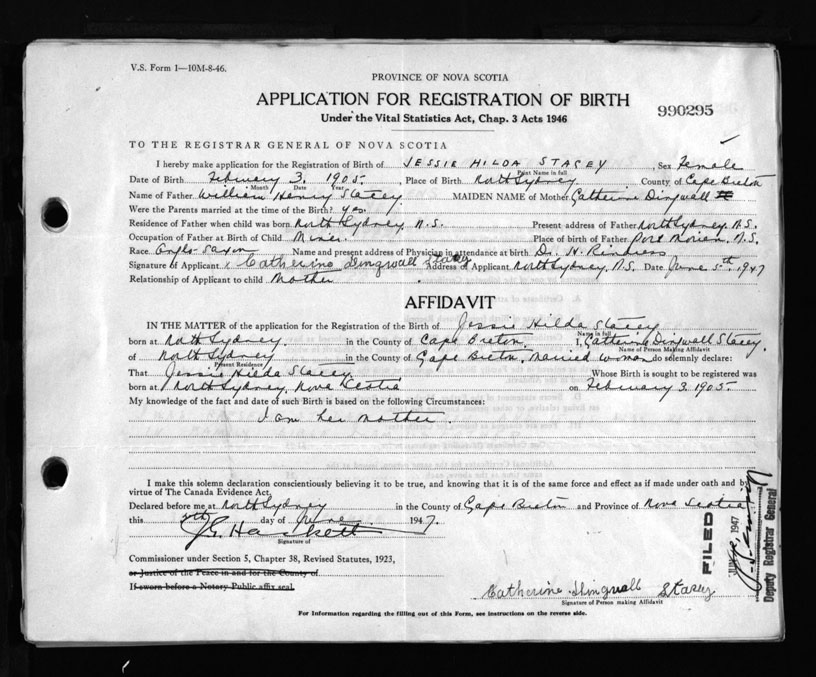 V.S. Form 1—10M-8-46.
PROVINCE OF NOVA SCOTIA
APPLICATION FOR REGISTRATION OF BIRTH
990295
Under the Vital Statistics Act, Chap. 3 Acts 1946
TO THE REGISTRAR GENERAL OF NOVA SCOTIA
I hereby make application for the Registration of Birth of JESSIE HILDA STACEY, Sex Female
Print Name in full
Date of Birth February 3. 1905., Place of Birth North Sydney. County of Cape Breton
Month Date Year
Name of Father William Henry Stacey MAIDEN NAME of Mother Catherine Dingwall
Were the Parents married at the time of the Birth? yes.
Residence of Father when child was born North Sydney, N.S. Present address of Father North Sydney, N.S.
Occupation of Father at Birth of Child Miner. Place of birth of Father Port Morien, N.S.
Race Anglo-Saxon Name and present address of Physician in attendance at birth Dr. H.
Signature of Applicant x Catherine Dingwall Stacey Address of Applicant North Sydney, N.S. Date June 5th, 1947
Relationship of Applicant to child Mother.
AFFIDAVIT
IN THE MATTER of the application for the Registration of the Birth of Jessie Hilda Stacey
Name in full
born at North Sydney. in the County of Cape Breton. I, Catherine Dingwall Stacey.
Name of Person Making Affidavit
of North Sydney in the County of Cape Breton, Married Woman do solemnly declare:
Present Residence
That Jessie Hilda Stacey Whose Birth is sought to be registered was
born at North Sydney, Nova Scotia on February 3. 1905.
My knowledge of the fact and date of such Birth is based on the following Circumstances:
I am her mother.
I make this solemn declaration conscientiously believing it to be true, and knowing that it is of the same force and effect as if made under oath and by
virtue of The Canada Evidence Act.
Declared before me at North Sydney in the County of Cape Breton and Province of Nova Scotia
this 5th day of June 1947.
J.G. Hackett
Signature of
Commissioner under Section 5, Chapter 38, Revised Statutes, 1923,
or Justice of the Peace in and for the County of
If sworn before a Notary Public affix seal.
Catherine Dingwall Stacey
Signature of Person making Affidavit
For Information regarding the filling out of this Form, see instructions on the reverse side.
FILED
1947
Deputy Registrar General